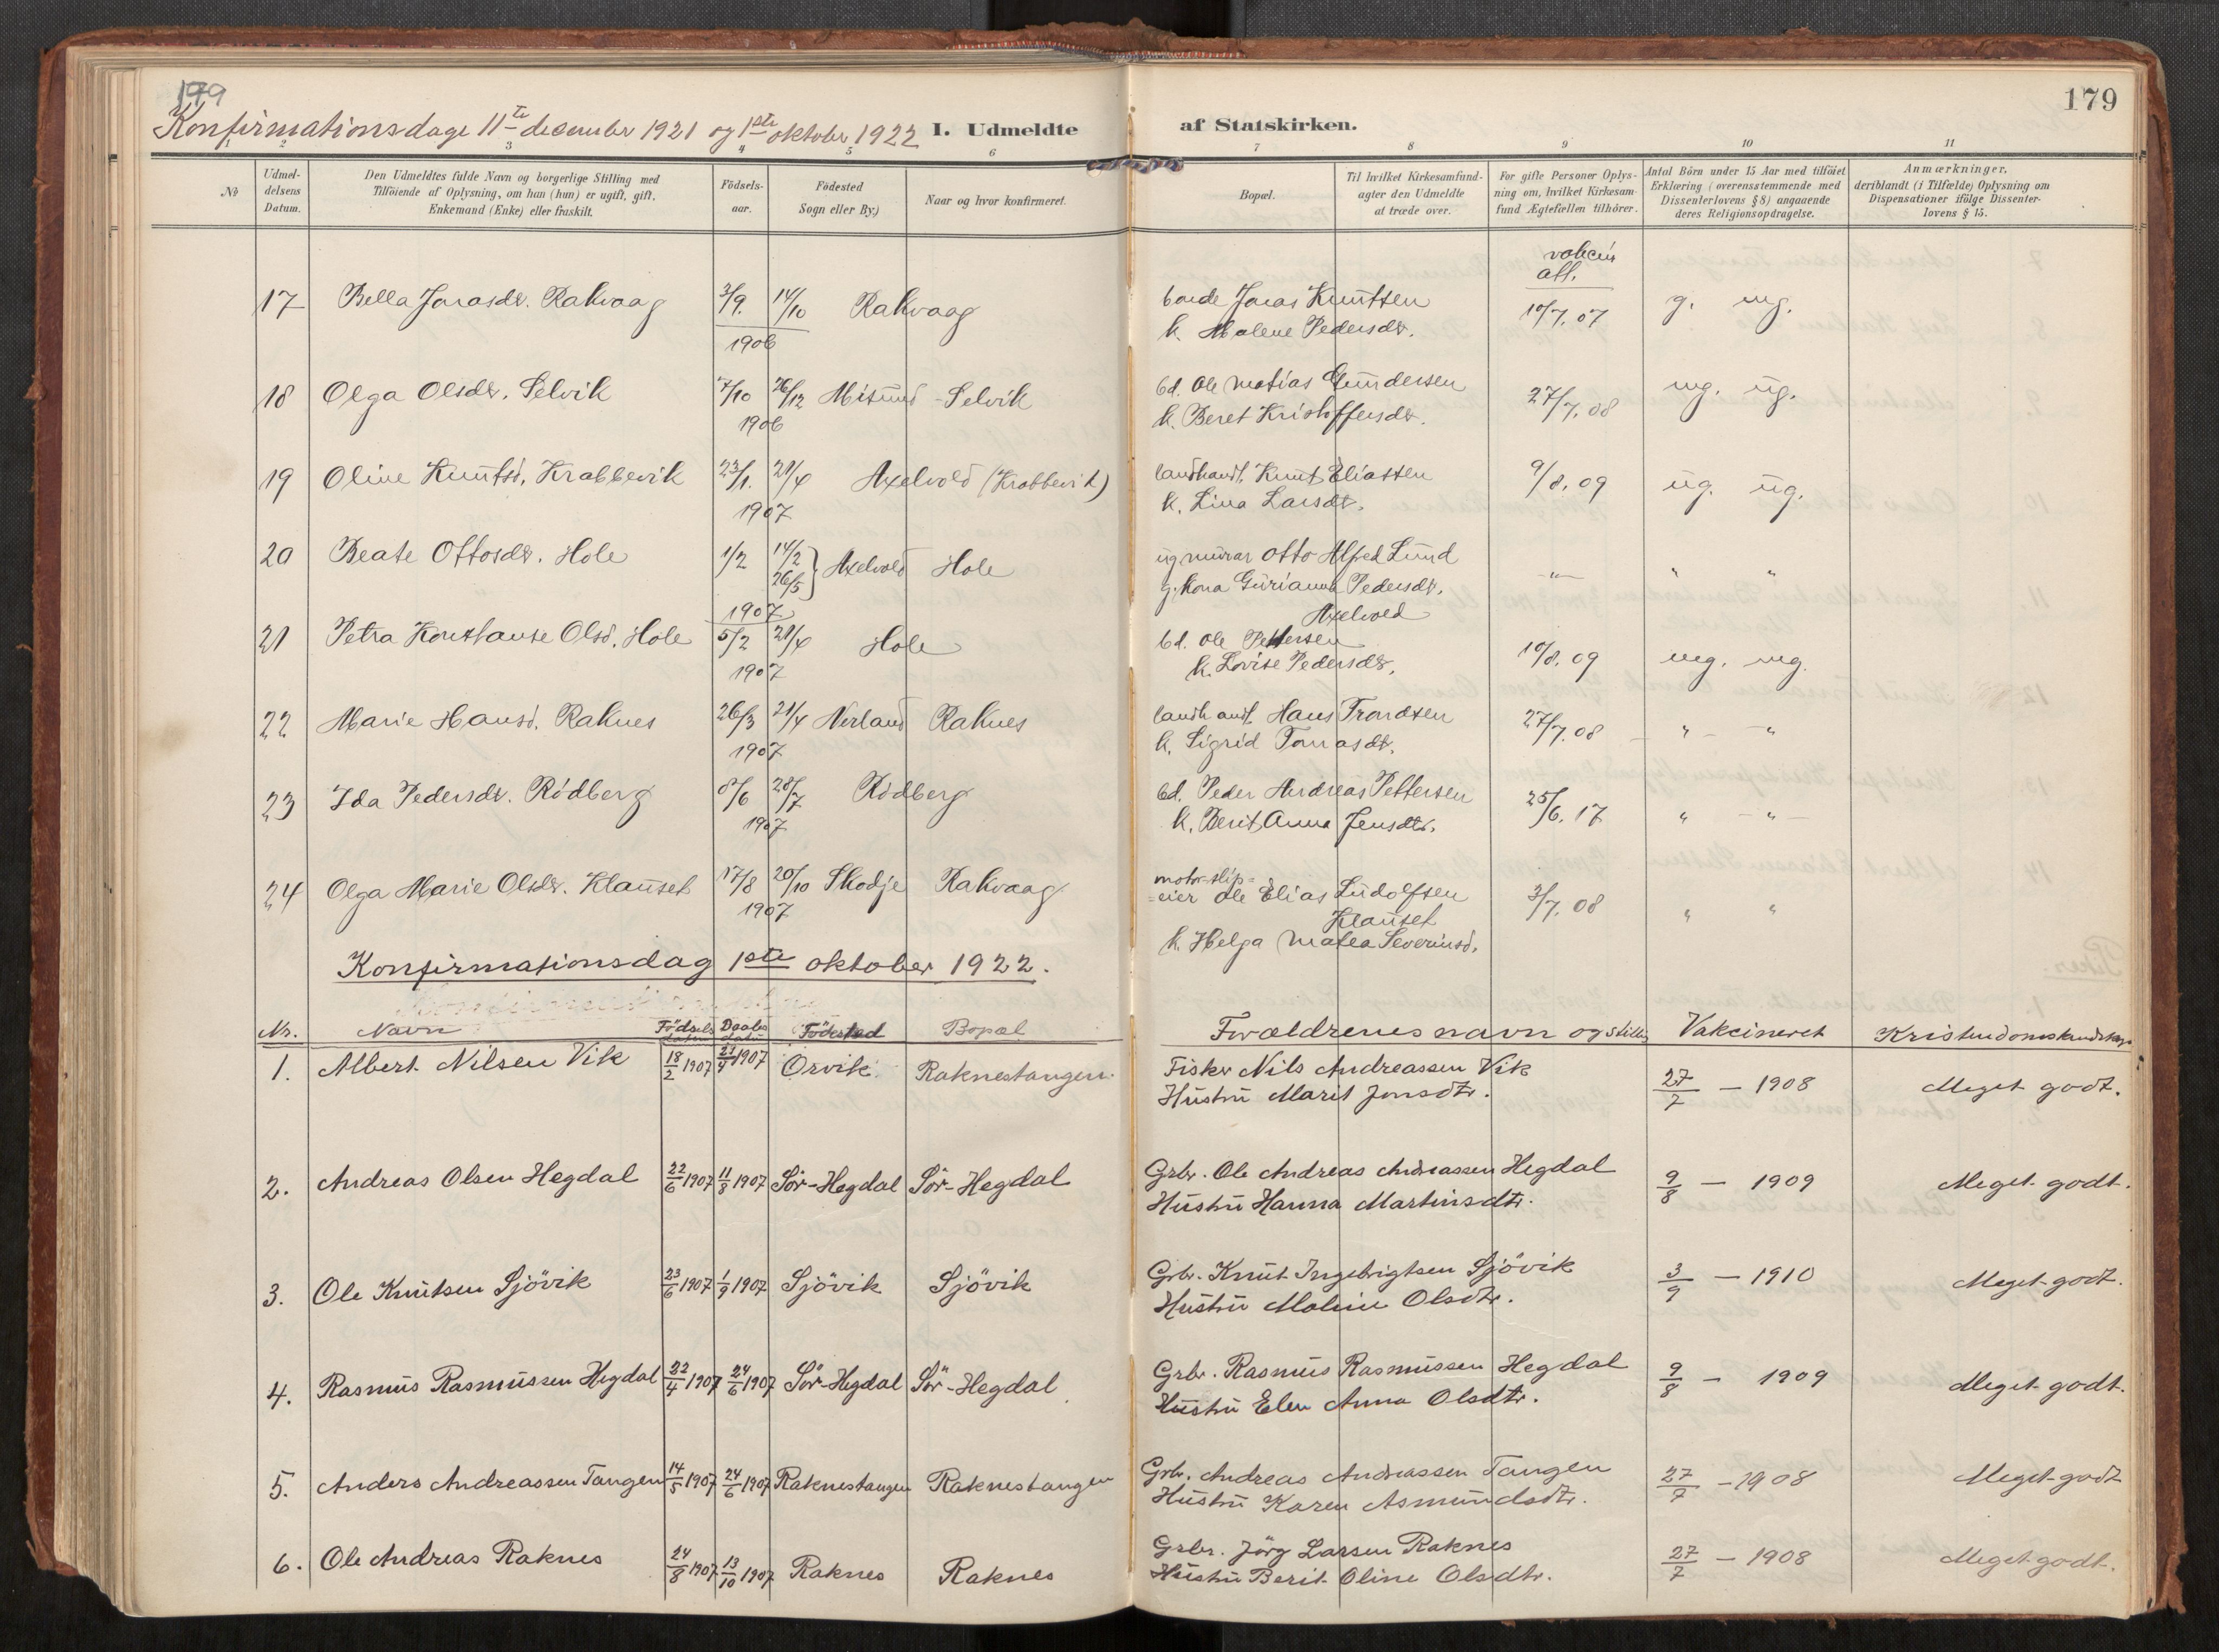 179
Konfirmationsdage 11te december 1921 og 1ste oktober 1922 I. Udmeldte af Statskirken.
179
1 2 3 4 5 6 7 8 9 10 11
No
Udmel-
delsens
Datum.
Den Udmeldtes fulde Navn og borgerlige Stilling med
Tilföiende af Oplysning, om han (hun) er ugift, gift,
Enkemand (Enke) eller fraskilt.
Födsels-
aar.
Födested
Sogn eller By.)
Naar og hvor konfirmeret.
Bopæl.
Til hvilket Kirkesamfund-
agter den Udmeldte
at træde over.
For gifte Personer Oplys-
ning om, hvilket Kirkesam-
fund Ægtefællen tilhörer.
Antal Börn under 15 Aar med tilföiet
Erklæring (overensstemmende med
Dissenterlovens § 8) angaaende
deres Religionsopdragelse.
Anmærkninger,
deriblandt (i Tilfælde) Oplysning om
Dispensationer ifölge Dissenter-
lovens § 15.
vakcin
att.
17 Bella Jonasdr. Rakvaag 3/9. 14/10 Rakvaag bonde Jonas Knutsen 10/7. 07 g. mg.
1906 k. Malene Pedersdr.
18 Olga Olsdr. Selvik 7/10 26/12 Misund - Selvik bd. Ole Matias Gundersen 27/7. 08 mg. ug.
1906 k. Beret Kristoffersdr.
19 Oline Knutsd. Krabbevik 23/1. 21/4 Axelvold (Krabbevik) landhandl. Knut Eliassen 9/8. 09 ug. ug.
1907 k. Lina Larsdr.
20 Beate Ottosdr. Hole 1/2 14/2 26/5 } Axelvold Hole ug murar Otto Alfred Lund -"- " "
1907 g. kona Gurianna Pedersdr.
Axelvold
21 Petra Konstanse Olsd. Hole 5/2 21/4 Hole bd. Ole Pettersen 10/8. 09 mg. mg.
1907 k. Lovise Pedersdr.
22 Marie Hansd. Raknes 26/3 21/4 Nerland Raknes landhandl. Hans Trondsen 27/7. 08 - " - "
1907 k. Sigrid Tomasdr.
23 Ida Pedersdr. Rödberg 8/6 28/7 Rödberg bd. Peder Andreas Pettersen 25/6. 17 " - " -
1907 k. Berit Anna Jensdtr.
24 Olga Marie Olsdr. Klauset 17/8 20/10 Skodje Rakvaag motor-slip-
=eier Ole Elias Ludolfsen 3/7. 08 " "
1907 Klauset
k. Helga Matea Severinsd.
Konfirmationsdag 1ste oktober 1922.
Nr. Navn Födsels datum Daabs datum Födested Bopæl Forældrenes navn og stilling Vakcineret Kristendomskundskap
1. Albert Nilsen Vik 18/2 1907 21/4 1907 Orvik Raknestangen. Fisker Nils Andreassen Vik 27/7 - 1908 Meget godt.
Hustru Marit Jonsdtr.
2. Andreas Olsen Hegdal 22/6 1907 11/8 1907 Sör-Hegdal Sör-Hegdal Grbr. Ole Andreas Andreassen Hegdal 9/8 - 1909 Meget godt.
Hustru Hanna Martinsdtr.
3. Ole Knutsen Sjövik 23/6 1907 1/9 1907 Sjövik Sjövik Grbr. Knut Ingebrigtsen Sjövik 3/9 - 1910 Meget godt.
Hustru Malin Olsdtr.
4. Rasmus Rasmussen Hegdal 22/4 1907 24/6 1907 Sör-Hegdal Sör-Hegdal Grbr. Rasmus Rasmussen Hegdal 9/8 - 1909 Meget godt.
Hustru Elen Anna Olsdtr.
5. Anders Andreassen Tangen 14/5 1907 24/6 1907 Raknestangen Raknestangen Grbr. Andreas Andreassen Tangen 27/7 - 1908 Meget godt
Hustru Karen Asmundsdtr.
6. Ole Andreas Raknes 24/8 1907 13/10 1907 Raknes Raknes Grbr. Jörg Larsen Raknes 27/7 - 1908 Meget godt.
Hustru Berit Oline Olsdtr.